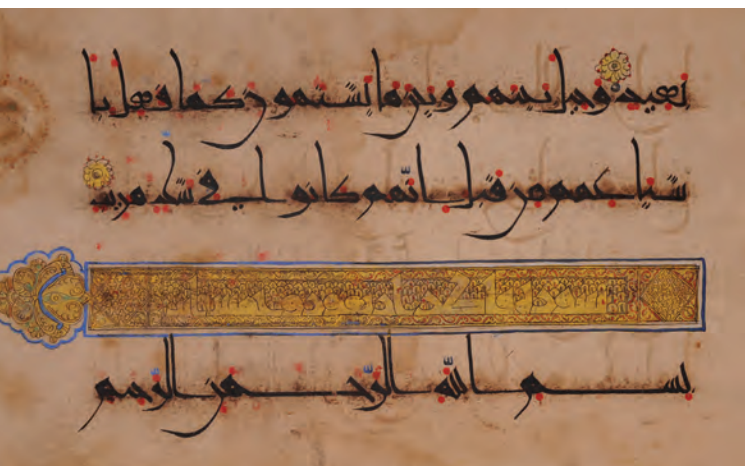 بعيد وحيل بينهم وبين ما يشتهون كما فعل با
شياعهم من قبل انّهم كانوا في شكّ مريب
بسم اللّه الرّحمن الرّحيم